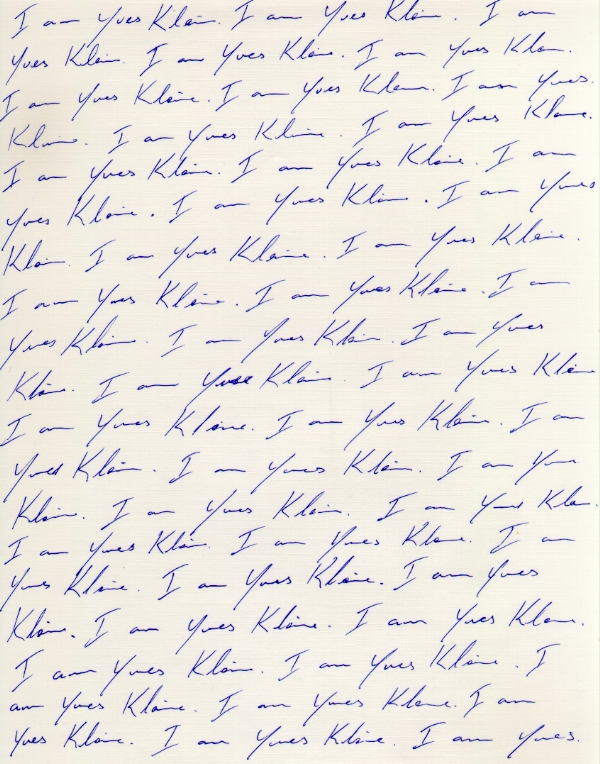 I am Yves Klein. I am Yves Klein. I am
Yves Klein. I am Yves Klein. I am Yves Klein.
I am Yves Klein. I am Yves Klein. I am Yves.
Klein. I am Yves Klein. I am Yves Klein.
I am Yves Klein. I am Yves Klein. I am
Yves Klein. I am Yves Klein. I am Yves
Klein. I am Yves Klein. I am Yves Klein.
I am Yves Klein. I am Yves Klein. I am
Yves Klein. I am Yves Klein. I am Yves
Klein. I am Yves Klein. I am Yves Klein
I am Yves Klein. I am Yves Klein. I am
Yves Klein. I am Yves Klein. I am Yves
Klein. I am Yves Klein. I am Yves Klein.
I am Yves Klein. I am Yves Klein. I am
Yves Klein. I am Yves Klein. I am Yves
Klein. I am Yves Klein. I am Yves Klein.
I am Yves Klein. I am Yves Klein. I
am Yves Klein. I am Yves Klein. I am
Yves Klein. I am Yves Klein. I am Yves.